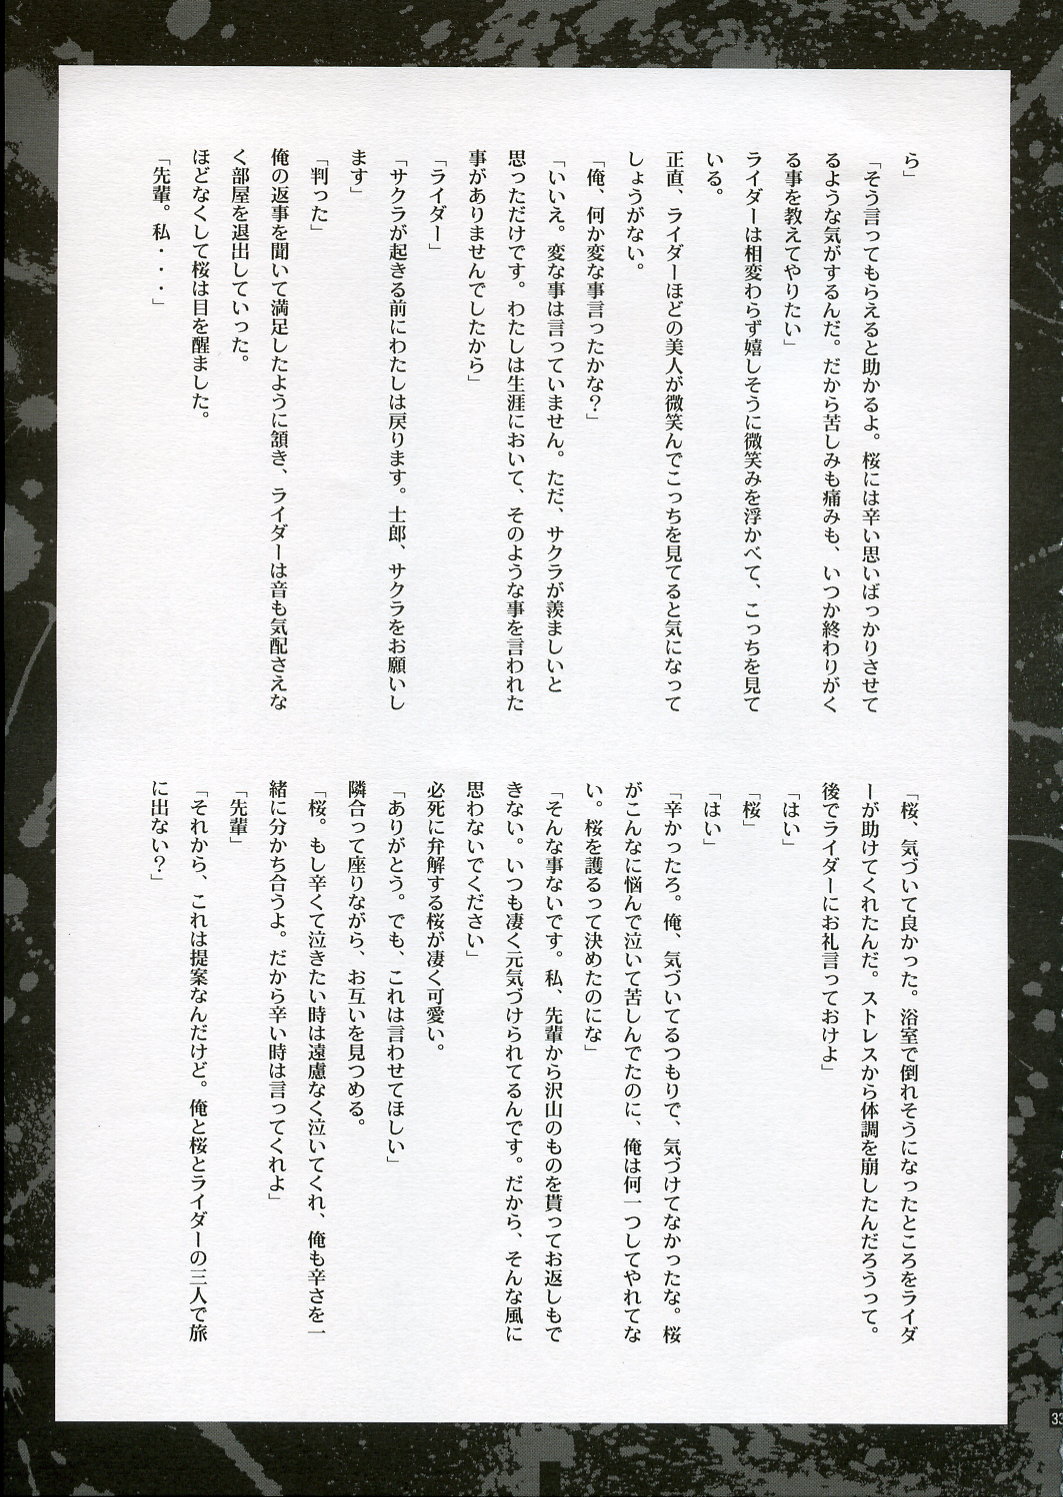 ら」
「そう言ってもらえると助かるよ。桜には辛い思いばっかりさせて
るような気がするんだ。だから苦しみも痛みも、いつか終わりがく
る事を教えてやりたい」
ライダーは相変わらず嬉しそうに微笑みを浮かべて、こっちを見て
いる。
正直、ライダーほどの美人が微笑んでこっちを見てると気になって
しょうがない。
「俺、何か変な事言ったかな？」
「いいえ。変な事は言っていません。ただ、サクラが羨ましいと
思っただけです。わたしは生涯において、そのような事を言われた
事がありませんでしたから」
「ライダー」
「サクラが起きる前にわたしは戻ります。士郎、サクラをお願いし
ます」
「判った」
俺の返事を聞いて満足したように頷き、ライダーは音も気配さえな
く部屋を退出していった。
ほどなくして桜は目を醒ました。
「先輩。私・・・」
「桜、気づいて良かった。浴室で倒れそうになったところをライダ
ーが助けてくれたんだ。ストレスから体調を崩したんだろうって。
後でライダーにお礼言っておけよ」
「はい」
「桜」
「はい」
「辛かったろ。俺、気づいてるつもりで、気づけてなかったな。桜
がこんなに悩んで泣いて苦しんでたのに、俺は何一つしてやれてな
い。桜を護るって決めたのにな」
「そんな事ないです。私、先輩から沢山のものを貰ってお返しもで
きない。いつも凄く元気づけられてるんです。だから、そんな風に
思わないでください」
必死に弁解する桜が凄く可愛い。
「ありがとう。でも、これは言わせてほしい」
隣合って座りながら、お互いを見つめる。
「桜。もし辛くて泣きたい時は遠慮なく泣いてくれ、俺も辛さを一
緒に分かち合うよ。だから辛い時は言ってくれよ」
「先輩」
「それから、これは提案なんだけど。俺と桜とライダーの三人で旅
に出ない？」
33